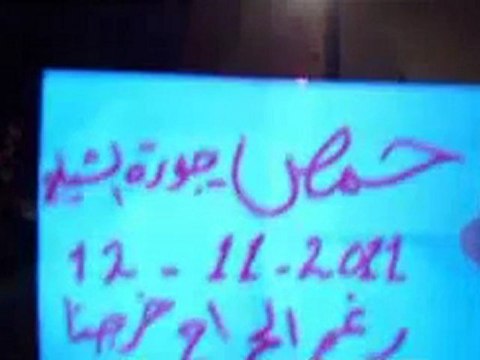 حمص - جورة الشياح
12 - 11 - 2011
رغم الجراح خرجنا